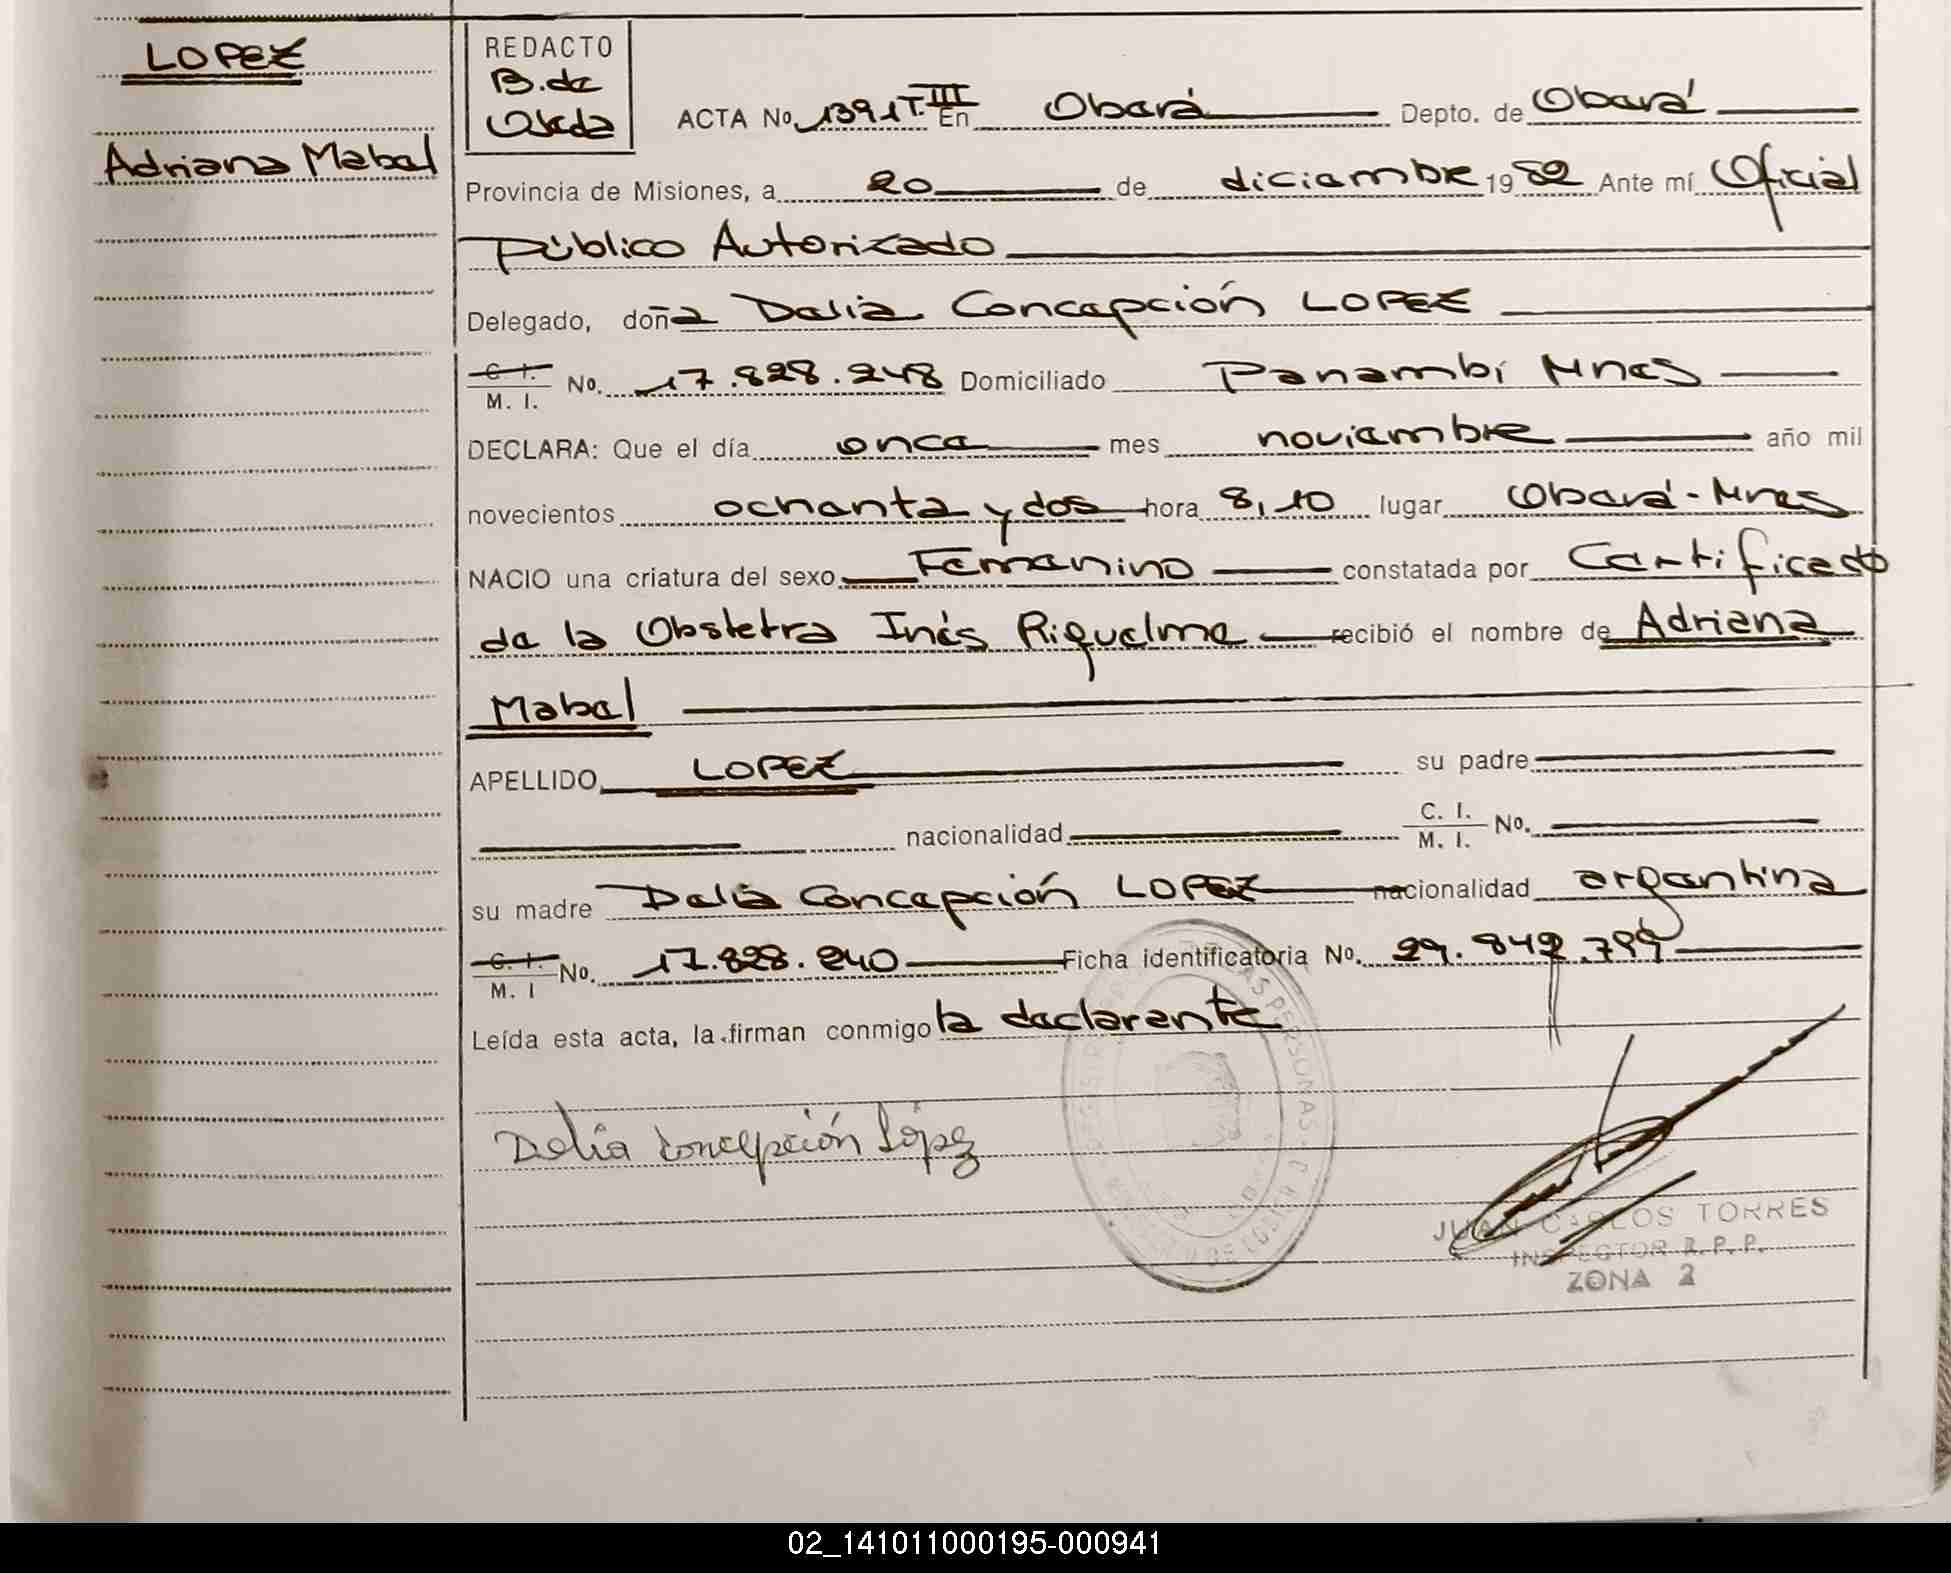 LOPEZ
Adriana Mabel
REDACTO
B. de
Ojeda
ACTA No. 1391 T. III En Oberá Depto. de Oberá
Provincia de Misiones, a 20 de diciembre 1982 Ante mí Oficial
Público Autorizado
Delegado, doña Delia Concepción LOPEZ
C. I. / M. I. No. 17.828.248 Domiciliado Panambí Mnes
DECLARA: Que el día once mes noviembre año mil
novecientos ochenta y dos hora 8,10 lugar Oberá - Mnes
NACIO una criatura del sexo Femenino constatada por Certificado
de la Obstetra Inés Riquelme recibió el nombre de Adriana
Mabel
APELLIDO LOPEZ su padre
nacionalidad C. I. / M. I. No.
su madre Delia Concepción LOPEZ nacionalidad argentina
C. I. / M. I No. 17.828.240 Ficha identificatoria No. 29.842.799
Leída esta acta, la firman conmigo la declarante
Delia Concepción López
JUAN CARLOS TORRES
INSPECTOR R. P. P.
ZONA 2
02_141011000195-000941